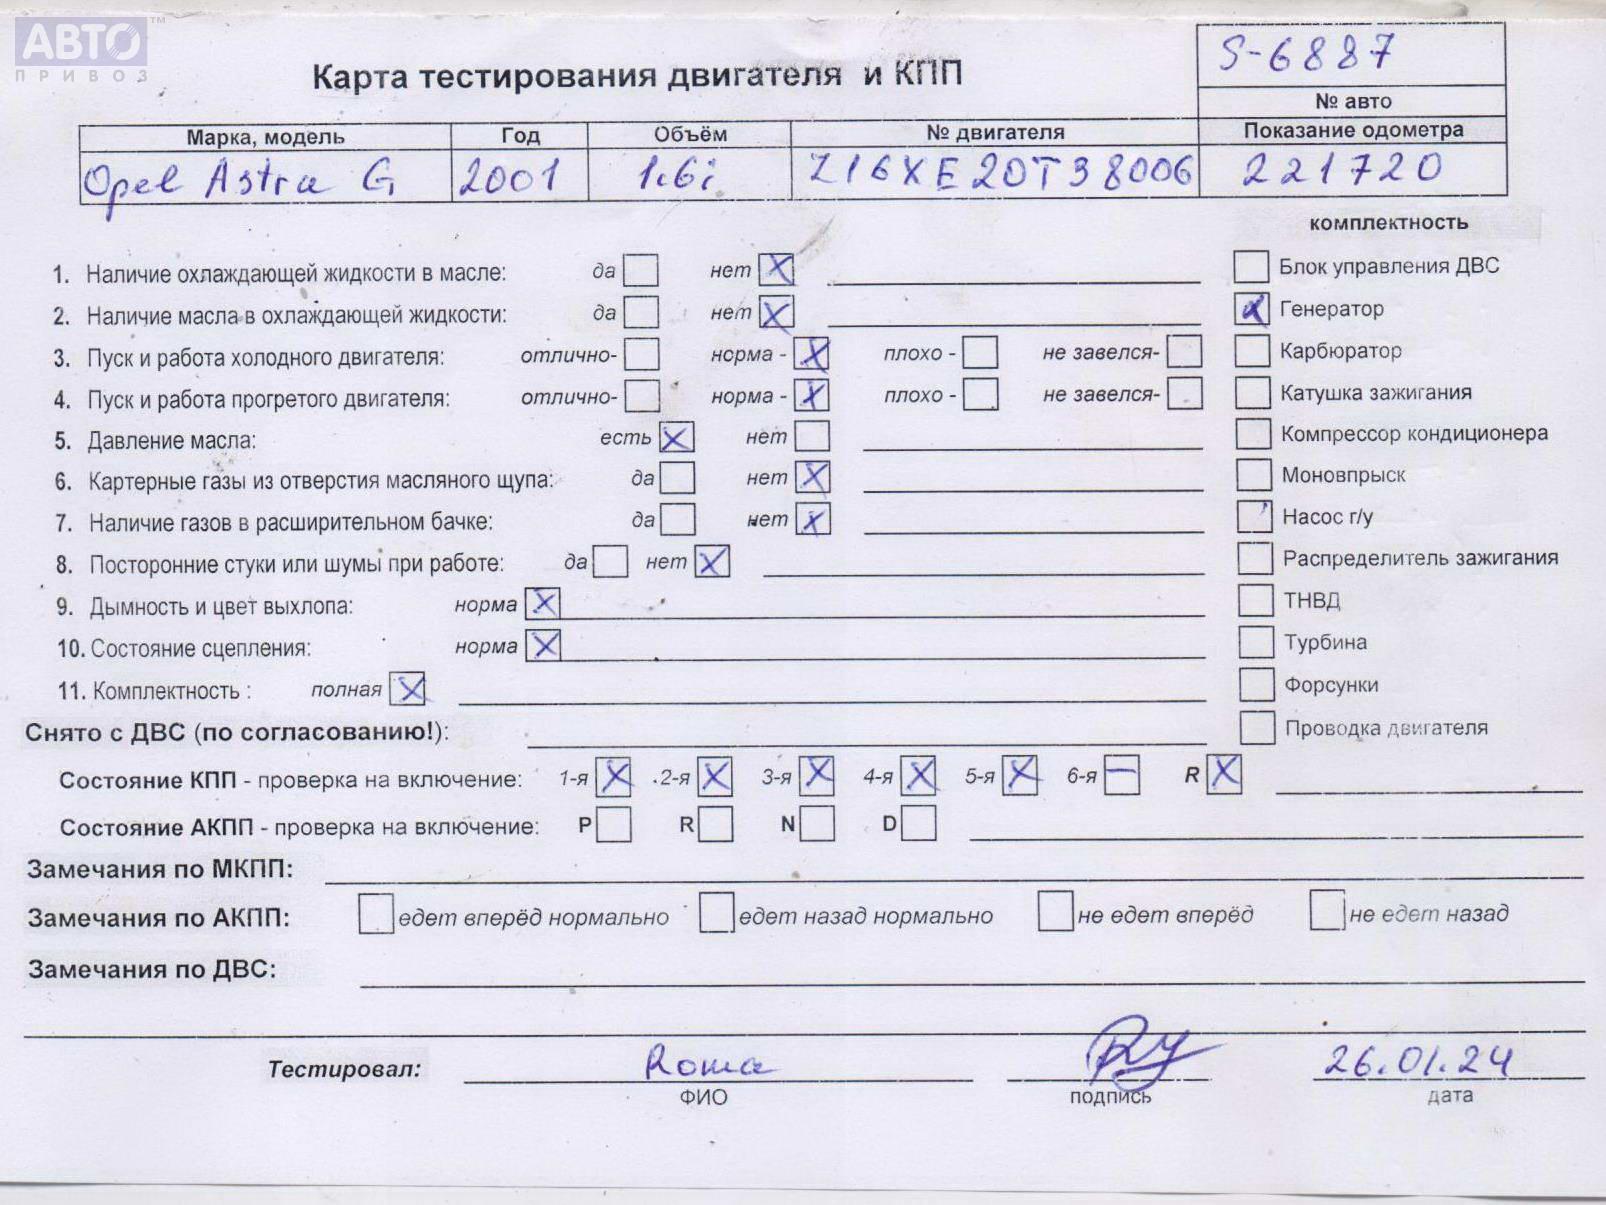 АВТО™
ПРИВОЗ
S-6887
Карта тестирования двигателя и КПП
№ авто
Марка, модель Год Объём № двигателя Показание одометра
Opel Astra G 2001 1.6i Z16XE20T38006 221720
комплектность
1. Наличие охлаждающей жидкости в масле: да нет X
Блок управления ДВС
2. Наличие масла в охлаждающей жидкости: да нет X
X Генератор
3. Пуск и работа холодного двигателя: отлично- норма - X плохо - не завелся-
Карбюратор
4. Пуск и работа прогретого двигателя: отлично- норма - X плохо - не завелся-
Катушка зажигания
5. Давление масла: есть X нет
Компрессор кондиционера
6. Картерные газы из отверстия масляного щупа: да нет X
Моновпрыск
7. Наличие газов в расширительном бачке: да нет X
Насос г/у
8. Посторонние стуки или шумы при работе: да нет X
Распределитель зажигания
9. Дымность и цвет выхлопа: норма X
ТНВД
10. Состояние сцепления: норма X
Турбина
11. Комплектность : полная X
Форсунки
Снято с ДВС (по согласованию!):
Проводка двигателя
Состояние КПП - проверка на включение: 1-я X 2-я X 3-я X 4-я X 5-я X 6-я — R X
Состояние АКПП - проверка на включение: P R N D
Замечания по МКПП:
Замечания по АКПП: едет вперёд нормально едет назад нормально не едет вперёд не едет назад
Замечания по ДВС:
Тестировал: Roma 26.01.24
ФИО подпись дата